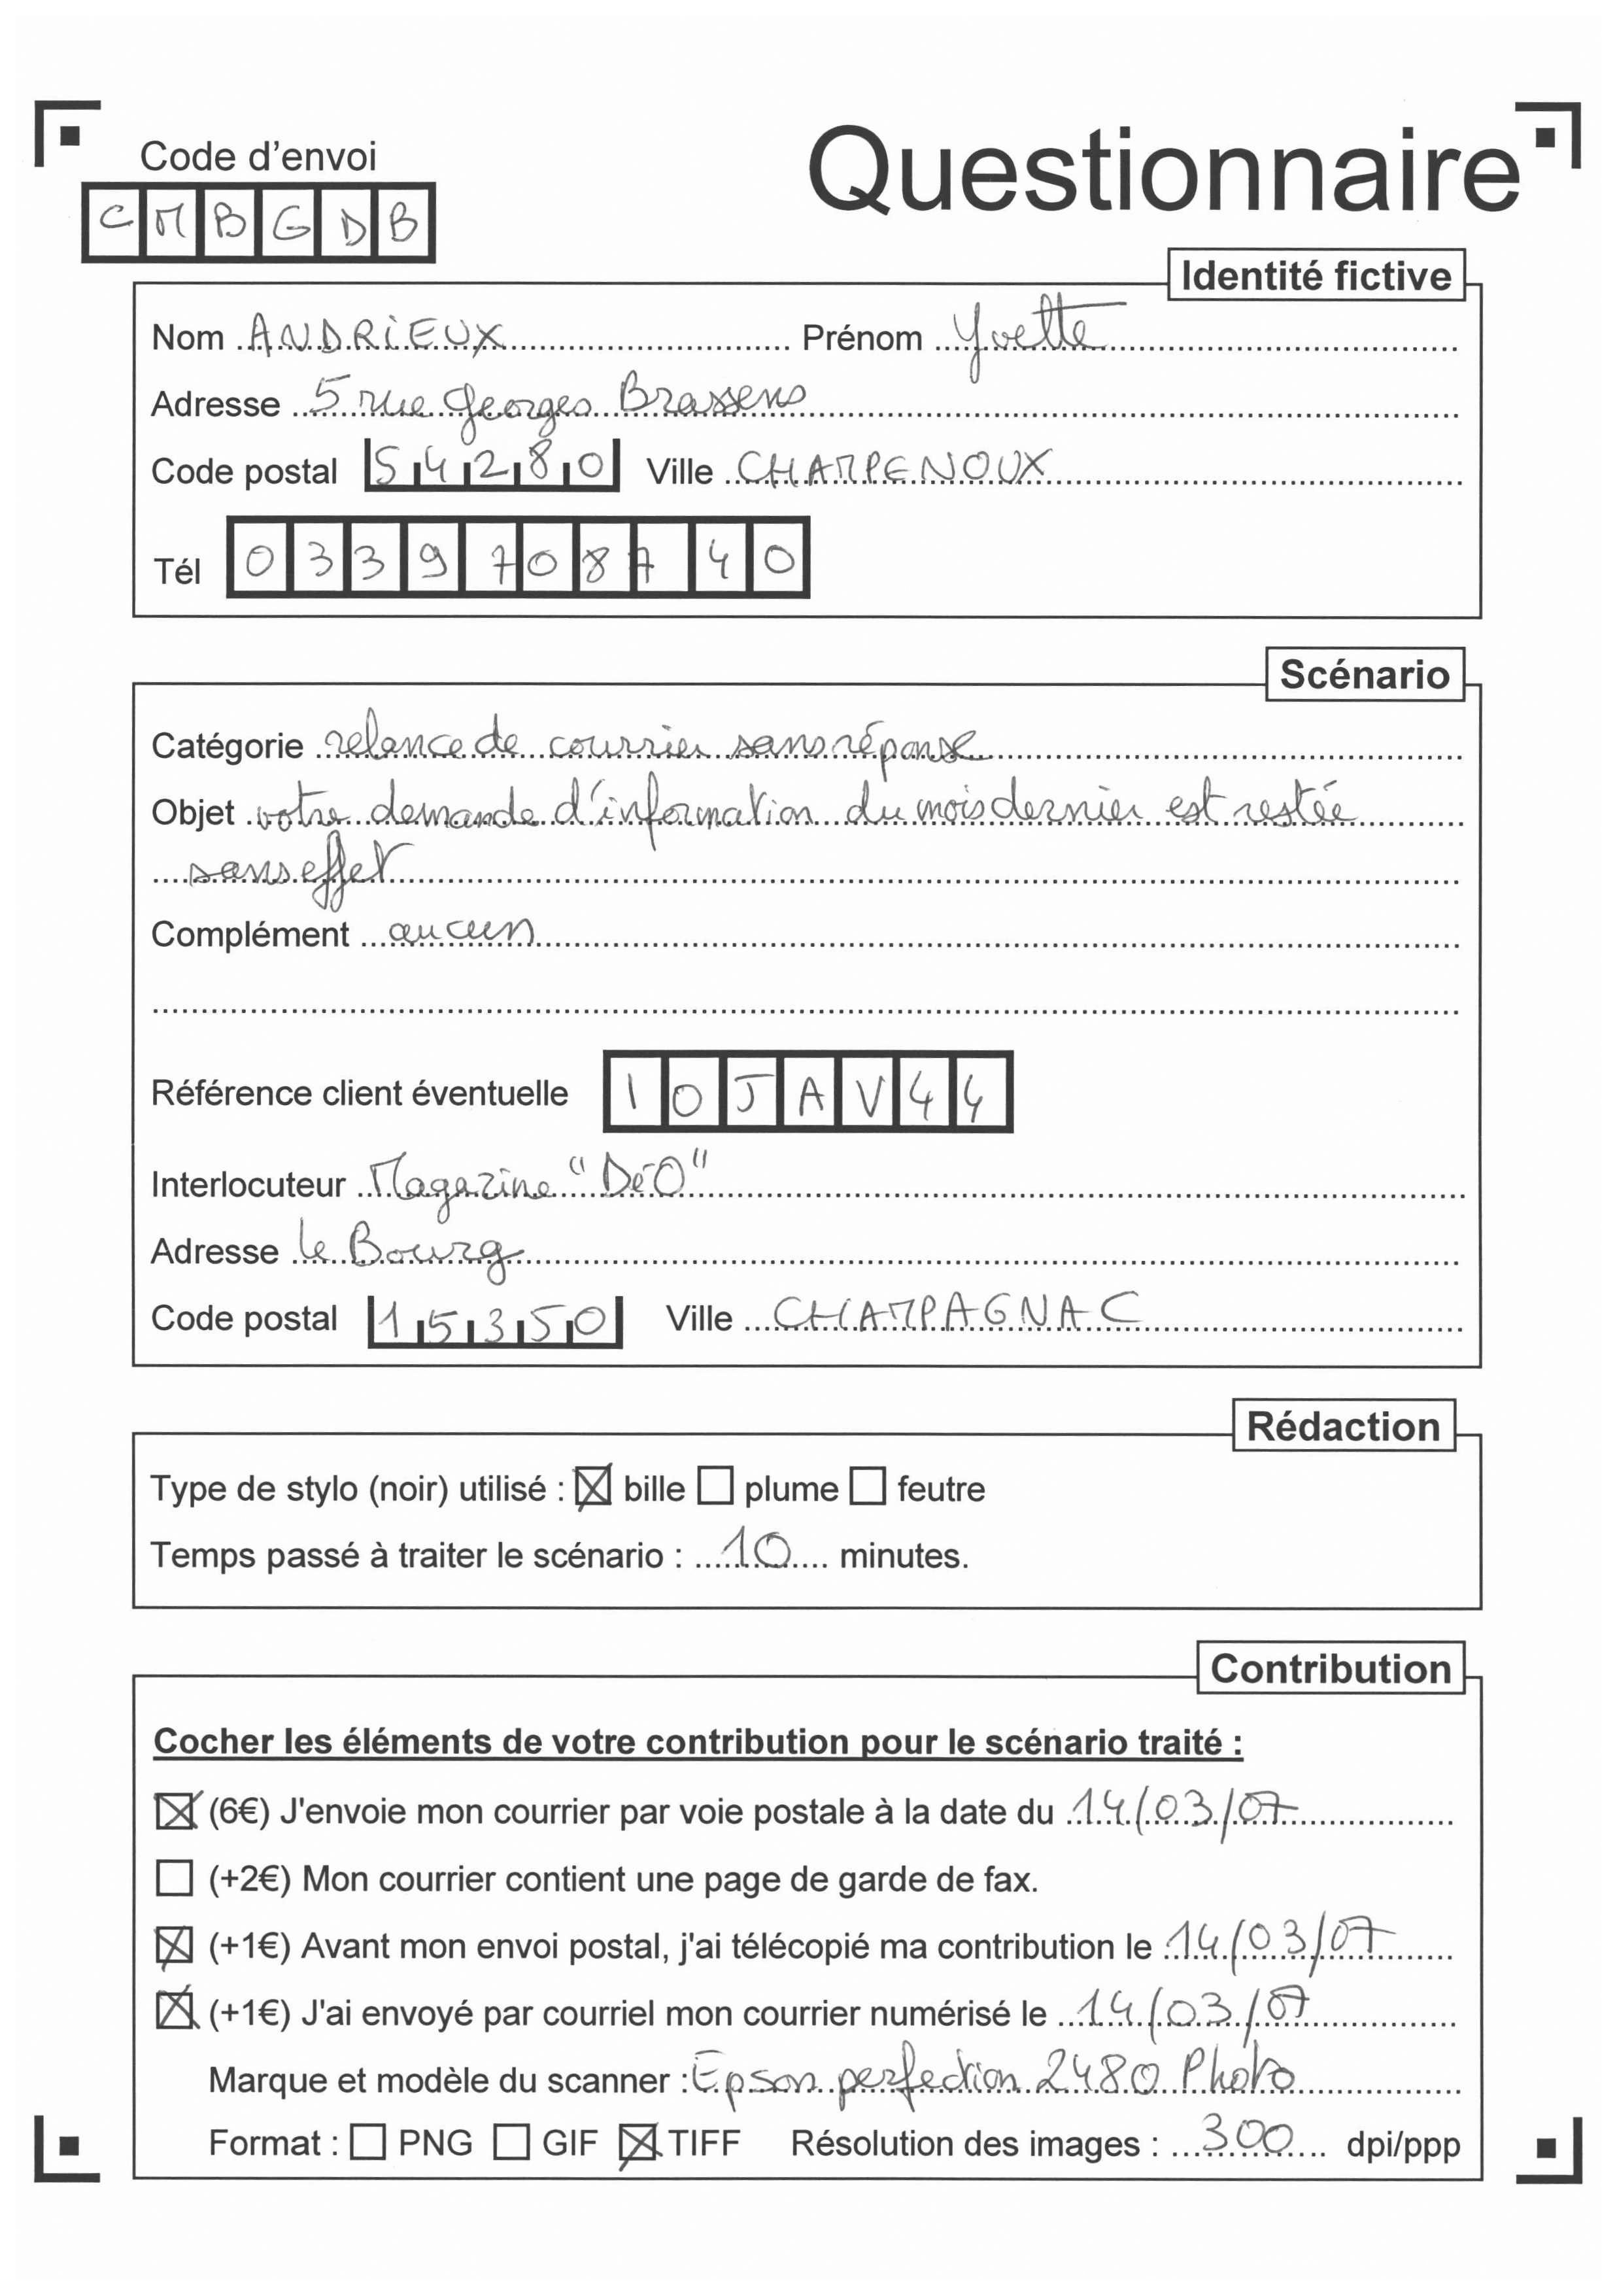 Code d'envoi
Questionnaire
CMBGDB
Identité fictive
Nom ANDRIEUX Prénom Yvette
Adresse 5 rue Georges Brassens
Code postal 54280 Ville CHAMPENOUX
Tél 0339708740
Scénario
Catégorie relance de courrier sans réponse
Objet votre demande d'information du mois dernier est restée
sans effet
Complément aucun
Référence client éventuelle 10JAV44
Interlocuteur Magazine "DéO"
Adresse le Bourg
Code postal 15350 Ville CHAMPAGNAC
Rédaction
Type de stylo (noir) utilisé : ☒ bille ☐ plume ☐ feutre
Temps passé à traiter le scénario : 10 minutes.
Contribution
Cocher les éléments de votre contribution pour le scénario traité :
☒ (6€) J'envoie mon courrier par voie postale à la date du 14/03/07
☐ (+2€) Mon courrier contient une page de garde de fax.
☒ (+1€) Avant mon envoi postal, j'ai télécopié ma contribution le 14/03/07
☒ (+1€) J'ai envoyé par courriel mon courrier numérisé le 14/03/07
Marque et modèle du scanner : Epson perfection 2480 Photo
Format : ☐ PNG ☐ GIF ☒ TIFF Résolution des images : 300 dpi/ppp